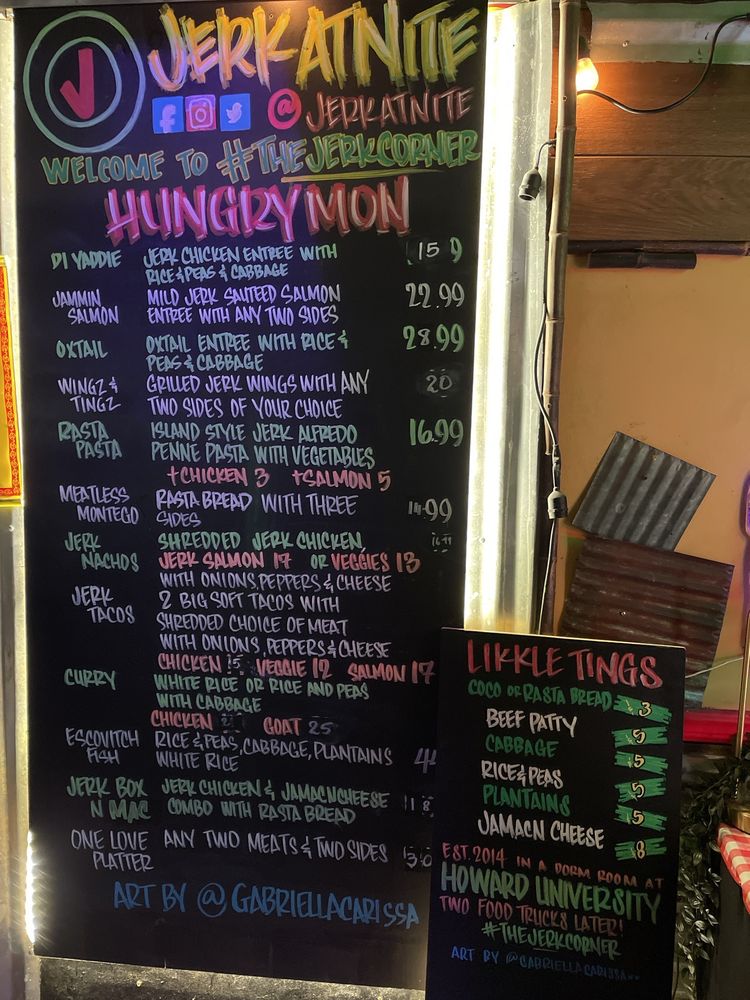 JERK AT NITE
@JERKATNITE
WELCOME TO #THEJERKCORNER
HUNGRY MON
DI YADDIE JERK CHICKEN ENTREE WITH RICE & PEAS & CABBAGE 15 9
JAMMIN SALMON MILD JERK SAUTEED SALMON ENTREE WITH ANY TWO SIDES 22.99
OXTAIL OXTAIL ENTREE WITH RICE & PEAS & CABBAGE 28.99
WINGZ & TINGZ GRILLED JERK WINGS WITH ANY TWO SIDES OF YOUR CHOICE 20
RASTA PASTA ISLAND STYLE JERK ALFREDO PENNE PASTA WITH VEGETABLES 16.99
+CHICKEN 3 +SALMON 5
MEATLESS MONTEGO RASTA BREAD WITH THREE SIDES
JERK NACHOS SHREDDED JERK CHICKEN,
JERK SALMON 17 OR VEGGIES 13
WITH ONIONS, PEPPERS & CHEESE
JERK TACOS 2 BIG SOFT TACOS WITH SHREDDED CHOICE OF MEAT WITH ONIONS, PEPPERS & CHEESE
CHICKEN 15 VEGGIE 12 SALMON 17
CURRY WHITE RICE OR RICE AND PEAS WITH CABBAGE
CHICKEN GOAT 25
ESCOVITCH FISH RICE & PEAS, CABBAGE, PLANTAINS WHITE RICE
JERK BOX N MAC JERK CHICKEN & JAMACNCHEESE COMBO WITH RASTA BREAD 18
ONE LOVE PLATTER ANY TWO MEATS & TWO SIDES 30
ART BY @GABRIELLACARISSA
LIKKLE TINGS
COCO OR RASTA BREAD 3
BEEF PATTY 5
CABBAGE 5
RICE & PEAS 5
PLANTAINS 5
JAMACN CHEESE 8
EST. 2014 IN A DORM ROOM AT
HOWARD UNIVERSITY
TWO FOOD TRUCKS LATER!
#THEJERKCORNER
ART BY @GABRIELLACARISSA